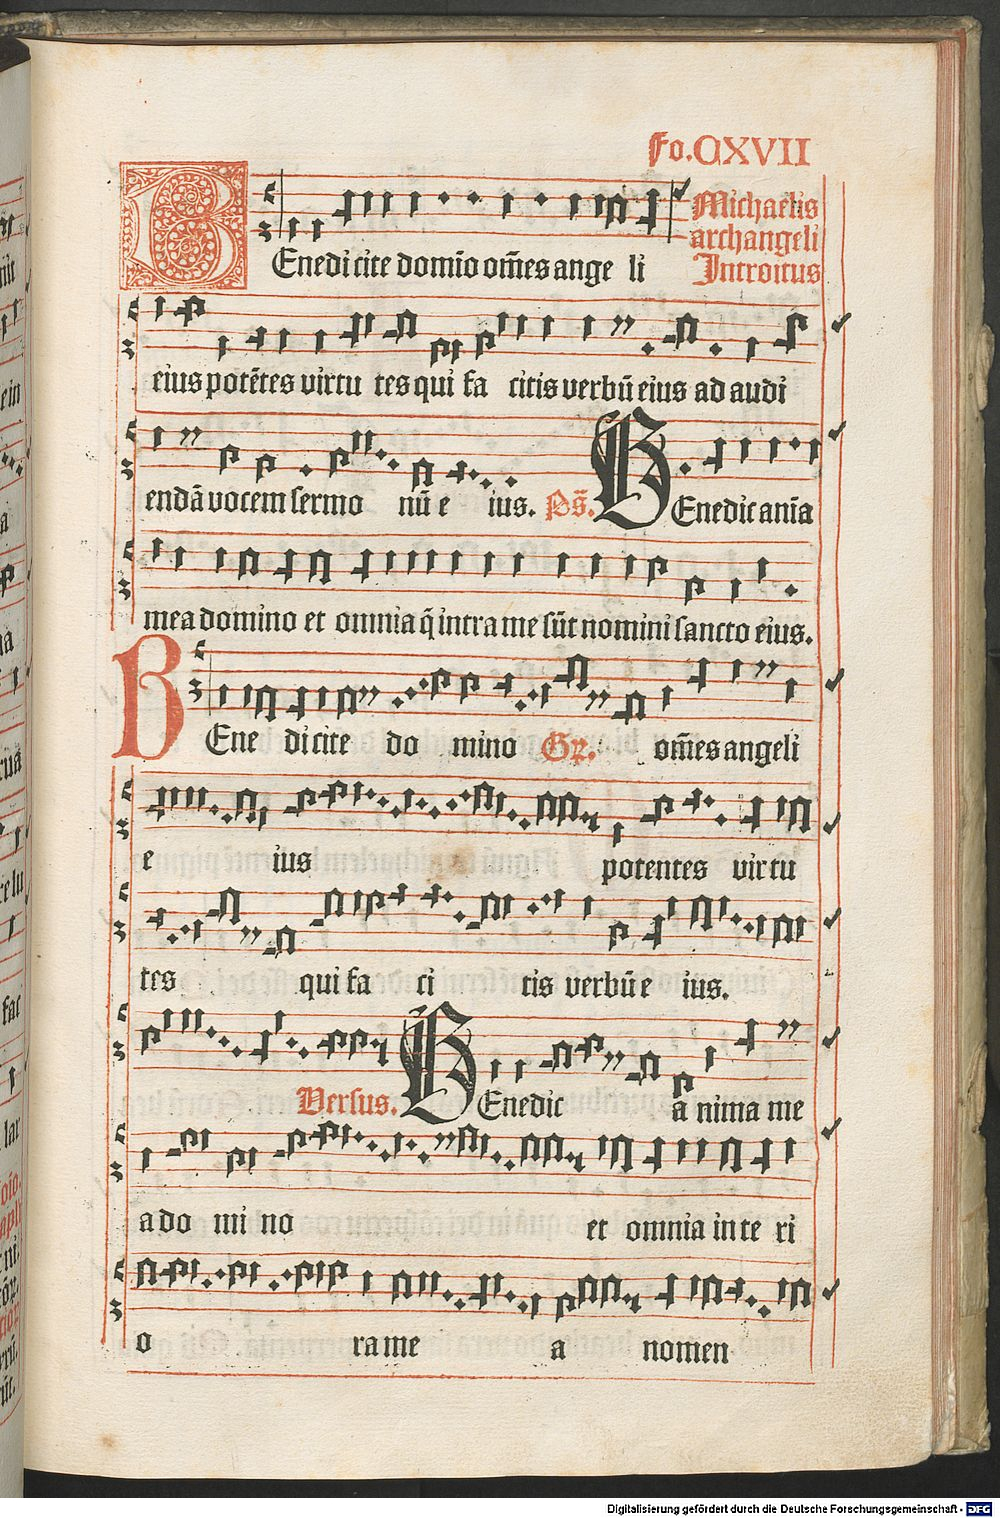 Fo. CXVII
Michaelis
archangeli
Introitus
BEnedicite domīo om̄es ange li
eius potētes virtu tes qui fa citis verbū eius ad audi
endā vocem sermo nū e ius. Ps̄. BEnedic anīa
mea domino et omnia q̄ intra me sūt nomini sancto eius.
BEne dicite do mino Gr. om̄es angeli
e ius potentes virtu
tes qui fa ci tis verbū e ius.
Versus. BEnedic a nima me
a do mi no et omnia in te ri
o ra me a nomen
Digitalisierung gefördert durch die Deutsche Forschungsgemeinschaft - DFG